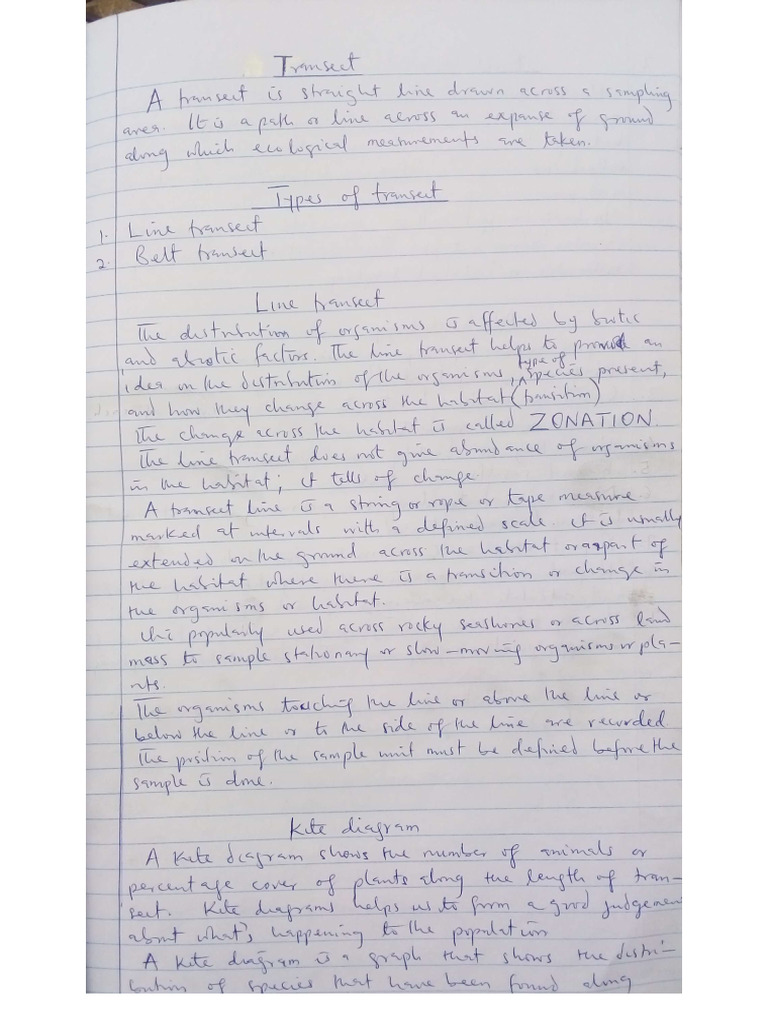 Transect
A transect is straight line drawn across a sampling
area. It is a path or line across an expanse of ground
along which ecological measurements are taken.
Types of transect
1. Line transect
2. Belt transect
Line transect
The distribution of organisms is affected by biotic
and abiotic factors. The line transect helps to provide an
idea on the distribution of the organisms, type of species present,
and how they change across the habitat (transition)
The change across the habitat is called ZONATION.
The line transect does not give abundance of organisms
in the habitat; it tells of change.
A transect line is a string or rope or tape measure
marked at intervals with a defined scale. It is usually
extended on the ground across the habitat or a part of
the habitat where there is a transition or change in
the organisms or habitat.
popularly used across rocky seashores or across land
mass to sample stationary or slow-moving organisms or pla-
nts.
The organisms touching the line or above the line or
below the line or to the side of the line are recorded
The position of the sample unit must be defined before the
sample is done.
Kite diagram
A kite diagram shows the number of animals or
percentage cover of plants along the length of tran-
sect. Kite diagrams helps us to form a good judgement
about what's happening to the population
A kite diagram is a graph that shows the distri-
bution of species that have been found along